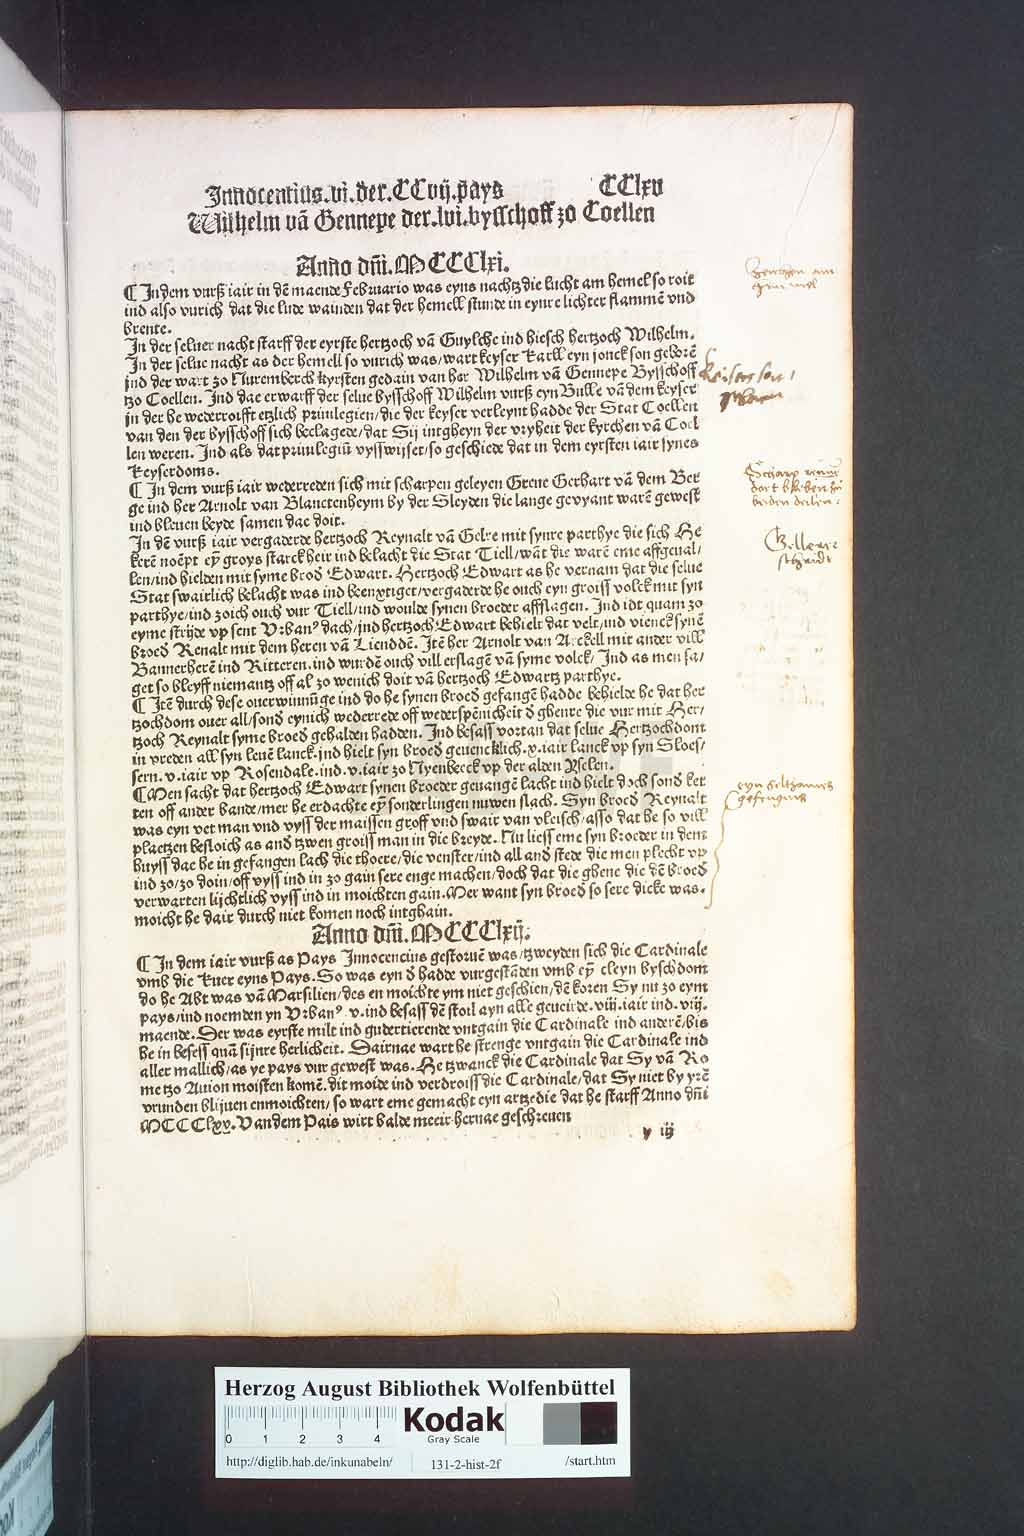 Innocentius.vi.der.CCvij.pays CClxv
Wilhelm vā Gennepe der.lvi.bysschoff zo Coellen
Anno dñi.MCCClxi.
¶ In dem vurß iair in dē maende Februario was eyns nachtz die lucht am hemel so roit
ind also vurich dat die lude wainden dat der hemell stunde in eynre lichter flammē vnd
brente.
In der seluer nacht starff der eyrste hertzoch vā Guylche ind hiesch hertzoch Wilhelm.
In der selue nacht as der hemell so vurich was/wart keyser Karll eyn jonck son geborē
jnd der wart zo Nuremberch kyrsten gedain van her Wilhelm vā Gennepe Bysschoff
tzo Coellen. Ind dae erwarff der selue bysschoff Wilhelm vurß eyn Bulle vā dem keyser
jn der he wederroifft etzlich priuilegien/die der keyser verleynt hadde der Stat Coellen
van den der bysschoff sich beclagede/dat Sij intgheyn der vryheit der kyrchen vā Coel
len weren. Ind als dat priuilegiū vysswijset/so geschiede dat in dem eyrsten iair synes
keyserdoms.
¶ In dem vurß iair wederreden sich mit scharpen geleyen Greue Gerhart vā dem Ber
ge ind her Arnolt van Blanckenheym by der Sleyden die lange gevyant warē gewest
ind bleuen beyde samen dae doit.
In dē vurß iair vergaderde hertzoch Reynalt vā Gelre mit synre parthye die sich He
kerē noēpt eȳ groys starck heir ind belacht die Stat Tiell/wāt die warē eme affgeual/
len/ind hielden mit syme brod Edwart. Hertzoch Edwart as he vernam dat die selue
Stat swairlich belacht was ind beenxtiget/vergaderde he ouch eyn groiss volck mit syn
parthye/ind zoich ouch vur Tiell/ind woulde synen broeder affslagen. Ind idt quam zo
eyme strijde vp sent Vrbanꝰ dach/jnd hertzoch Edwart behielt dat velt/ind vienck synē
broed Renalt mit dem heren vā Lienddē. Itē her Arnolt van Arckell mit ander vill
Bannerherē ind Ritteren.ind wurdē ouch vill erslagē vā syme volck/ Ind as men sa/
get so bleyff niemantz off al zo wenich doit vā hertzoch Edwartz parthye.
¶ Itē durch dese ouerwinnūge ind do he synen broed gefangē hadde behielde he dat her
tzochdom ouer all/sond eynich wederrede off wederspēnicheit d ghenre die vur mit Her/
tzoch Reynalt syme broed gehalden hadden. Ind besass vortan dat selue Hertzochdom
in vreden all syn leuē lanck.ind hielt syn broed geuencklich.v.iair lanck vp syn Sloes/
sern.v.iair vp Rosendale.ind.v.iair zo Nyenbeeck vp der alden Yselen.
¶ Men sacht dat hertzoch Edwart synen broeder geuangē lacht ind hielt doch sond ker
ten off ander bande/mer he erdachte eȳ sonderlingen nuwen slach. Syn broed Reynalt
was eyn vet man vnd vyss der maissen groff vnd swair van vleisch/asso dat he so vill
plaetzen besloich as and tzwen groiss man in die breyde. Nu liess eme syn broeder in dem
huyss dae he in gefangen lach die thoere/die venster/ind all and stede die men plecht vp
ind zo/zo doin/off vyss ind in zo gain sere enge machen/doch dat die ghene die dē broed
verwarten lijchtlich vyss ind in moichten gain.Mer want syn broed so sere dicke was.
moicht he dair durch niet komen noch intghain.
Anno dñi.MCCClxij.
¶ In dem iair vurß as Pays Innocencius gestoruē was/tzweyden sich die Cardinale
vmb die kuer eyns Pays. So was eyn d hadde vurgestāden vmb eȳ cleyn byschdom
do he Abt was vā Marsilien/des en moichte ym niet geschien/dē koren Sy nu zo eym
pays/ind noemden yn Vrbanꝰ.v.ind besass dē stoil ayn alle geueirde.viij.iair ind.viij.
maende. Der was eyrste milt ind gudertierende vntgain die Cardinale ind anderē/bis
he in besess quā sijnre herlicheit. Dairnae wart he strenge vntgain die Cardinale ind
aller mallich/as ye pays vur gewest was. He tzwanck die Cardinale dat Sy vā Ro
me tzo Auion moisten komē.dit moide ind verdroiss die Cardinale/dat Sy niet by yrē
vrunden blijuen enmoichten/so wart eme gemacht eyn artzedie dat he starff Anno dñi
MCCClxx.Van dem Pais wirt balde meeir hernae geschreuen
y iij
keisers son
geboren
eyn seltzames
gefengnus
Herzog August Bibliothek Wolfenbüttel
0 1 2 3 4
Kodak
Gray Scale
http://diglib.hab.de/inkunabeln/ 131-2-hist-2f /start.htm